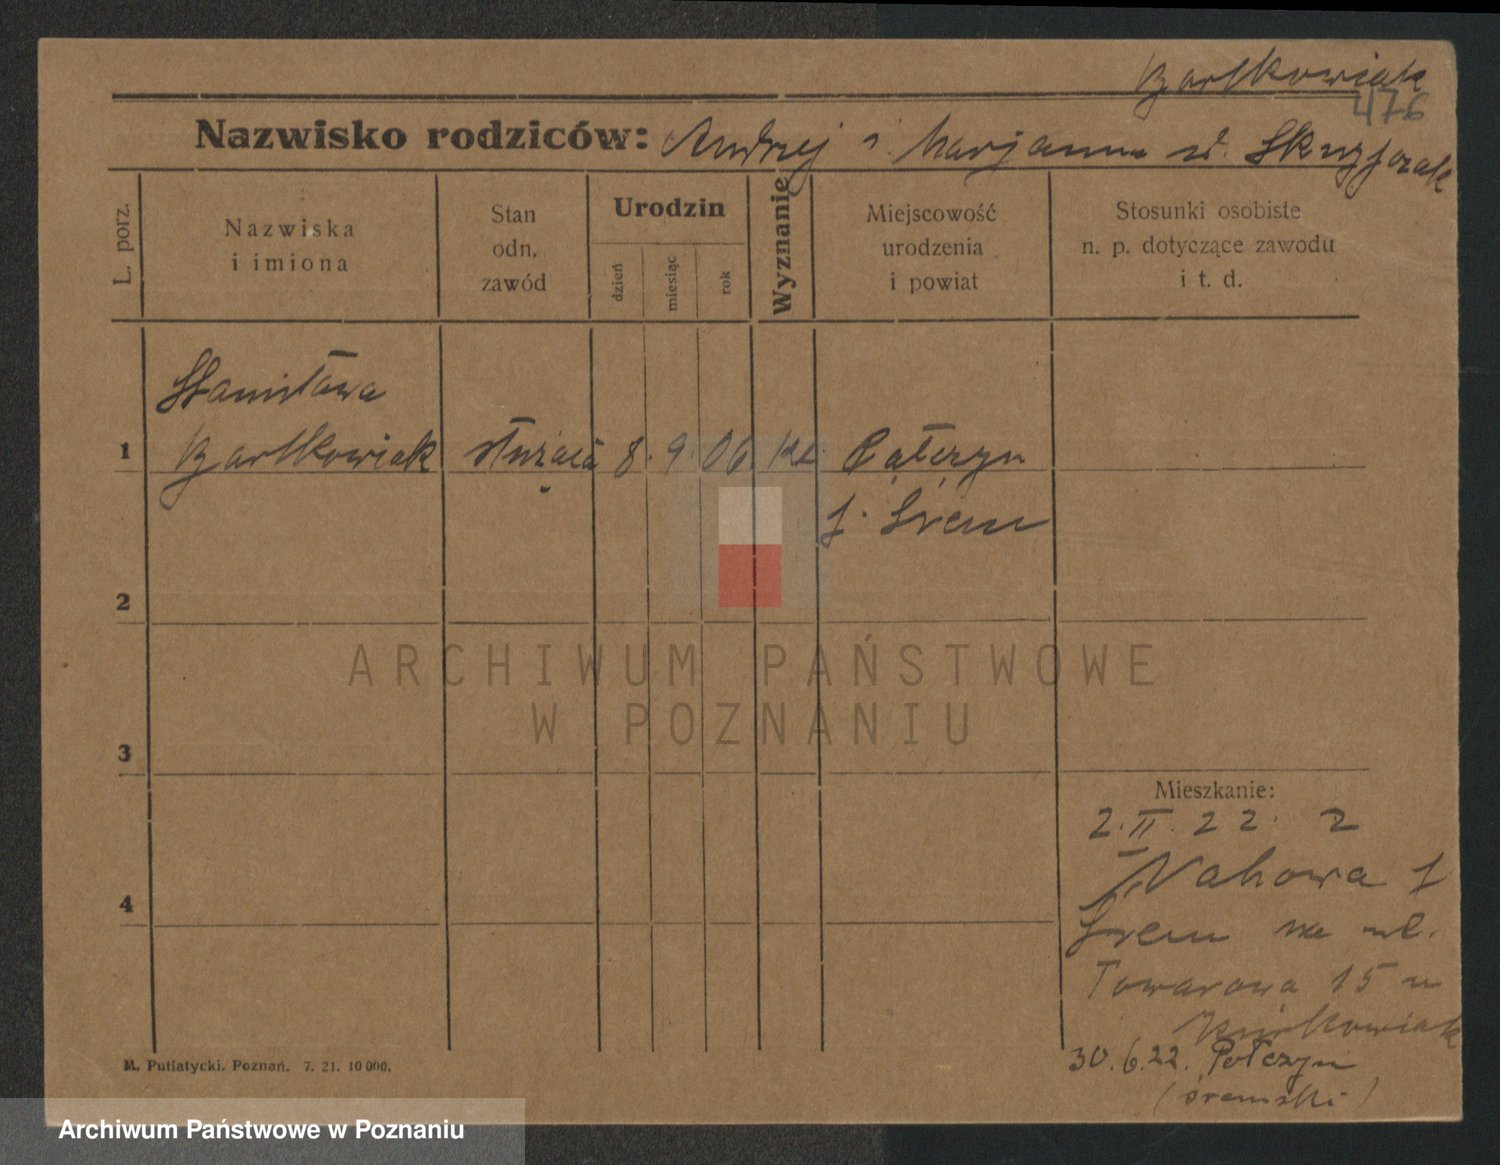 Bartkowiak
476
Nazwisko rodziców: Andrzej i Marjanna z d. Skrzypczak
L. porz.
Nazwiska
i imiona
Stan
odn.
zawód
Urodzin
dzień
miesiąc
rok
Wyznanie
Miejscowość
urodzenia
i powiat
Stosunki osobiste
n. p. dotyczące zawodu
i t. d.
Stanisława
1 Bartkowiak służąca 8. 9. 06 kt.
Śrem
2
3
4
Mieszkanie:
2. II. 22. z
Śrem na ul.
Towarowa 15 u
30.6.22.
(śremski)
M. Putiatycki. Poznań. 7. 21. 10 000.
ARCHIWUM PAŃSTWOWE
W POZNANIU
Archiwum Państwowe w Poznaniu